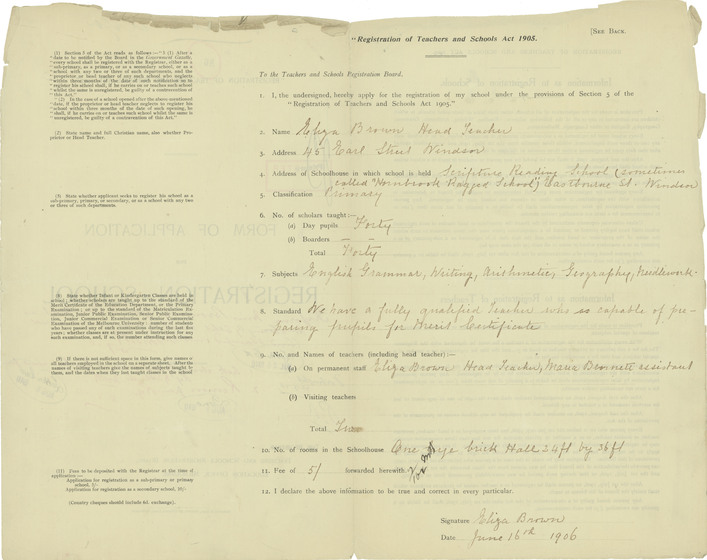 [SEE BACK.
"Registration of Teachers and Schools Act 1905.
To the Teachers and Schools Registration Board.
1. I, the undersigned, hereby apply for the registration of my school under the provisions of Section 5 of the
"Registration of Teachers and Schools Act 1905."
2. Name Eliza Brown Head Teacher
3. Address 45 Earl Street Windsor
4. Address of Schoolhouse in which school is held Scripture Reading School (sometimes
called "Hornbrook Ragged School") Eastbourne St. Windsor
5. Classification Primary
6. No. of scholars taught:—
(a) Day pupils Forty
(b) Boarders — —
Total Forty
7. Subjects English Grammar, Writing, Arithmetic, Geography, Needlework-
8. Standard We have a fully qualified Teacher who is capable of pre-
paring pupils for Merit Certificate
9. No. and Names of teachers (including head teacher):—
(a) On permanent staff Eliza Brown Head Teacher, Maria assistant
(b) Visiting teachers
Total Two
10. No. of rooms in the Schoolhouse One brick Hall 24ft by 36ft
11. Fee of 5/ forwarded herewith
12. I declare the above information to be true and correct in every particular.
Signature Eliza Brown
Date June 16 1906
(1) Section 5 of the Act reads as follows:—" 5 (1) After a
date to be notified by the Board in the Government Gazette,
every school shall be registered with the Registrar, either as a
sub-primary, as a primary, or as a secondary school, or as a
school with any two or three of such departments, and the
proprietor or head teacher of any such school who neglects
within three months of the date of such notification so to
register his school shall, if he carries on or teaches such school
whilst the same is unregistered, be guilty of a contravention of
this Act."
"(2) In the case of a school opened after the above mentioned
date, if the proprietor or head teacher neglects to register his
school within three months of the date of such opening, he
shall, if he carries on or teaches such school whilst the same is
unregistered, be guilty of a contravention of this Act.
(2) State name and full Christian name, also whether Pro-
prietor or Head Teacher.
(5) State whether applicant seeks to register his school as a
sub-primary, primary, secondary, or as a school with any two
or three of such departments.
(8) State whether Infant or Kindergarten Classes are held in
school; whether scholars are taught up to the standard of the
Merit Certificate of the Education Department, or the Primary
Examination; or up to the standard of the Matriculation Ex-
amination, Junior Public Examination, Senior Public Examina-
tion, Junior Commercial Examination or Senior Commercial
Examination of the Melbourne University; number of students
who have passed any of such examinations during the last five
years; whether classes are at present under instruction for any
such examination, and, if so, the number attending such classes
(9) If there is not sufficient space in this form, give names of
all teachers employed in the school on a separate sheet. After the
names of visiting teachers give the names of subjects taught by
them, and the dates when they last taught classes in the school
(11) Fees to be deposited with the Registrar at the time of
application:—
Application for registration as a sub-primary or primary
school, 5/-
Application for registration as a secondary school, 10/-
(Country cheques should include 6d. exchange).